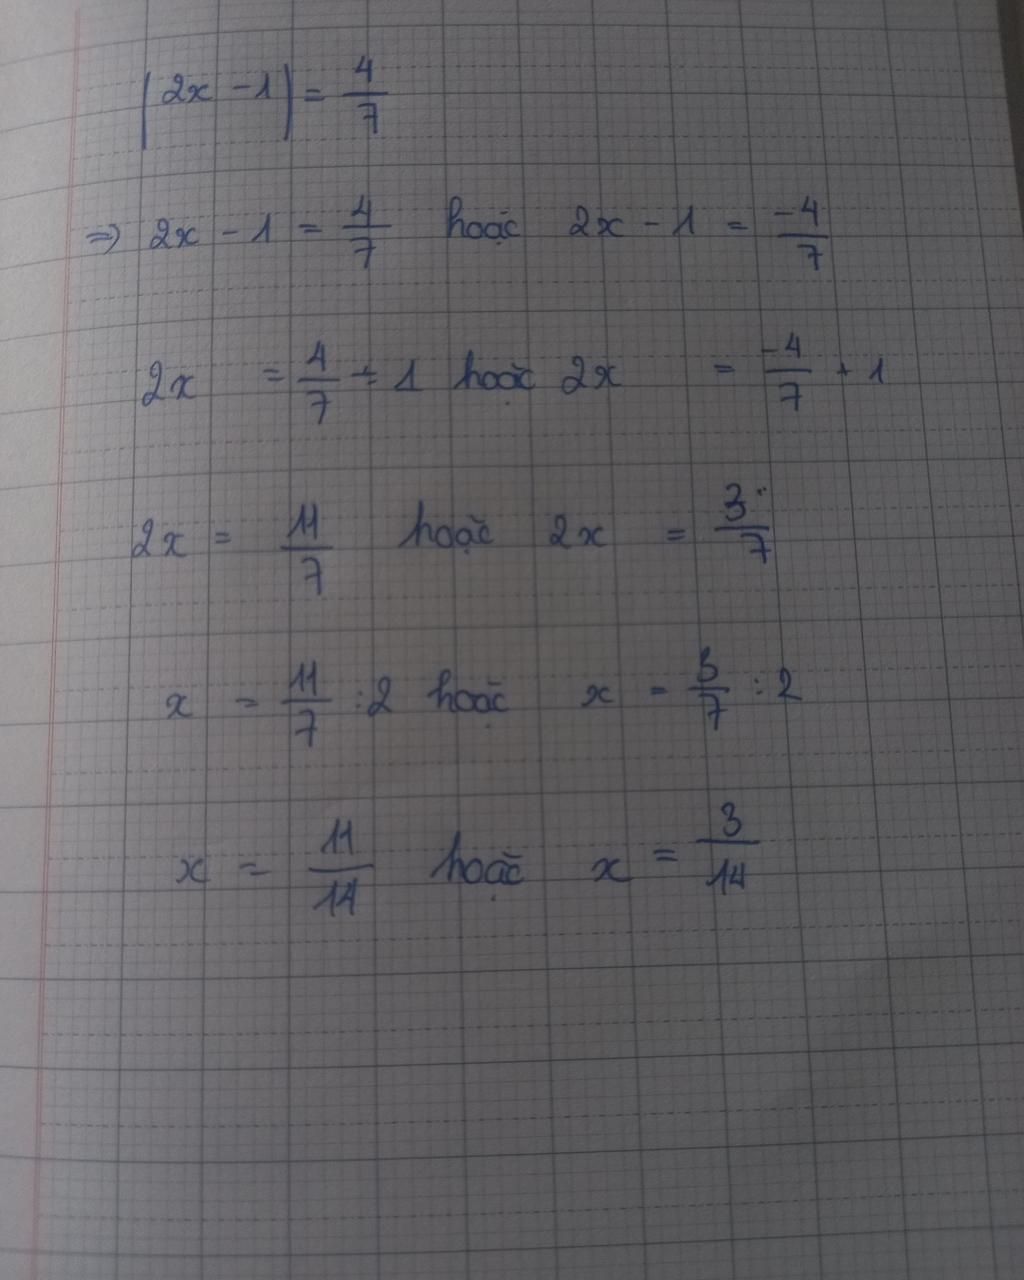 |2x - 1| = 4/7
=> 2x - 1 = 4/7 hoặc 2x - 1 = -4/7
2x = 4/7 + 1 hoặc 2x = -4/7 + 1
2x = 11/7 hoặc 2x = 3/7
x = 11/7 : 2 hoặc x = 3/7 : 2
x = 11/14 hoặc x = 3/14